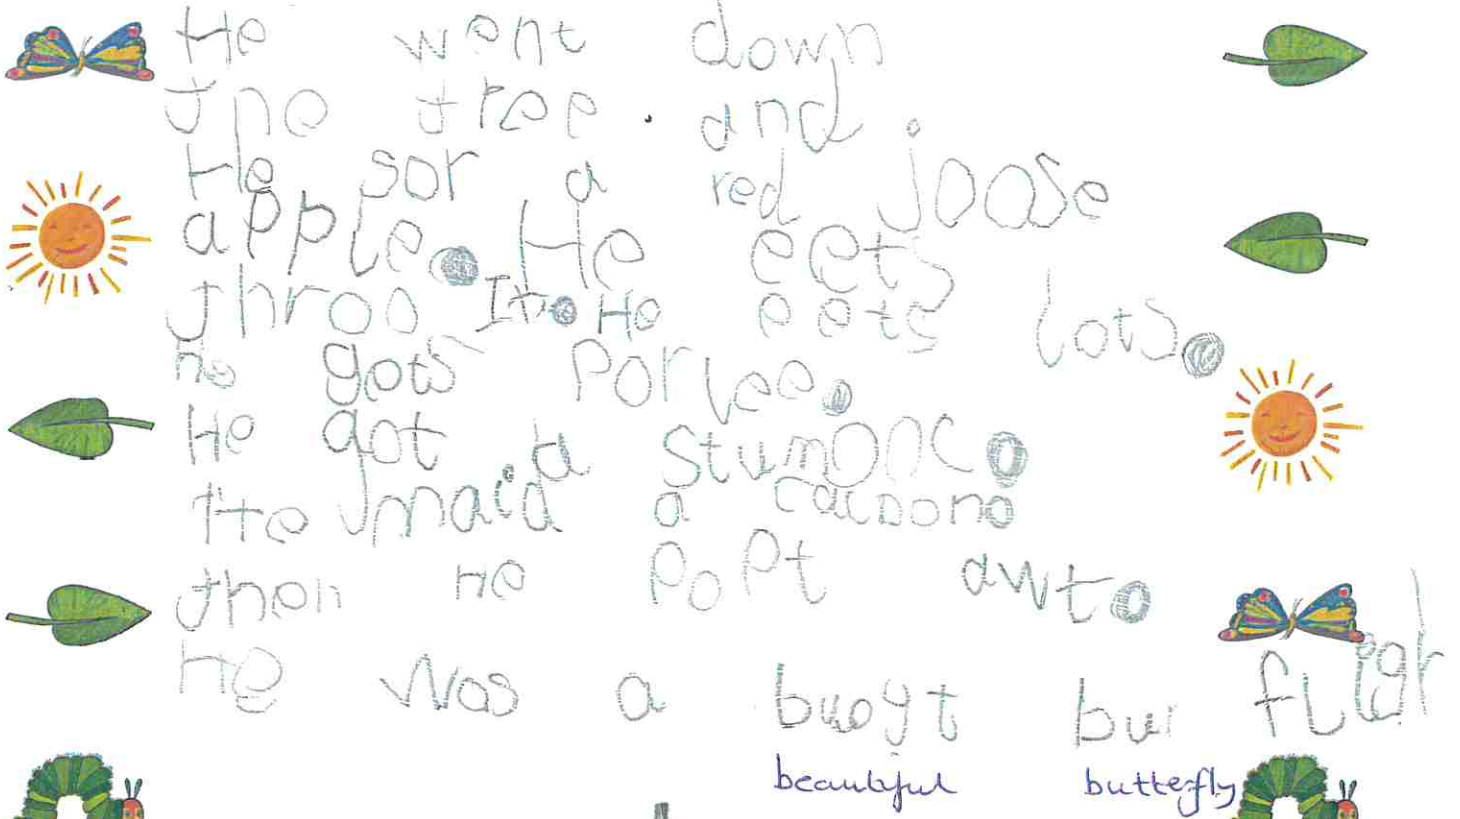 He went down
the tree. and
He sor a red joose
apple. He eets
throo It. He eets lots.
he gots porlee.
He got a stumonc.
He maid a cacoono
then he popt awt.
He was a buoyt bu fligh
beautiful butterfly